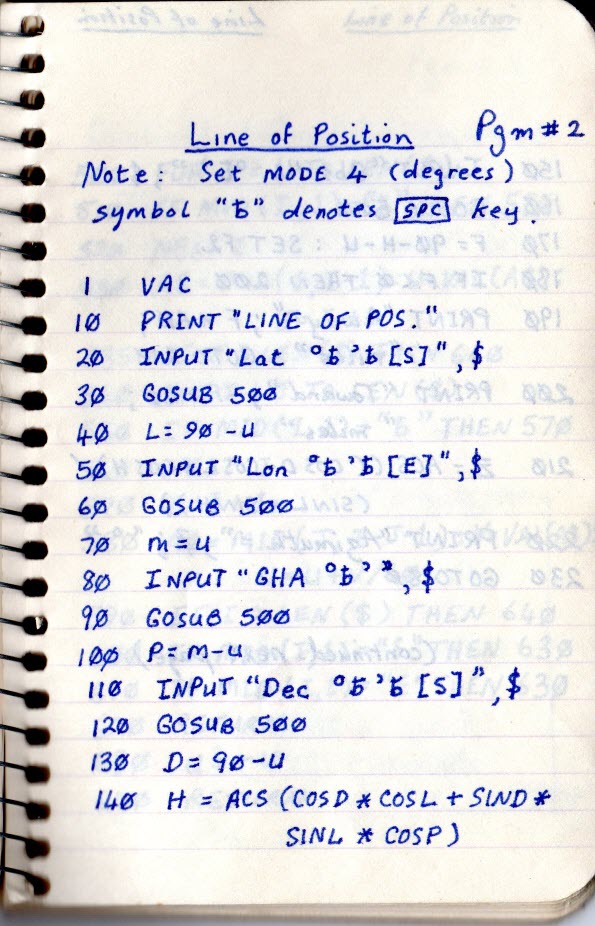 Line of Position Pgm #2
Note: Set MODE 4 (degrees)
symbol "ƀ" denotes SPC key.
1 VAC
10 PRINT "LINE OF POS."
20 INPUT "Lat °ƀ'ƀ[S]",$
30 GOSUB 500
40 L=90-U
50 INPUT "Lon °ƀ'ƀ[E]",$
60 GOSUB 500
70 M=U
80 INPUT "GHA °ƀ'",$
90 GOSUB 500
100 P=M-U
110 INPUT "Dec °ƀ'ƀ[S]",$
120 GOSUB 500
130 D=90-U
140 H=ACS(COSD*COSL+SIND*
SINL*COSP)